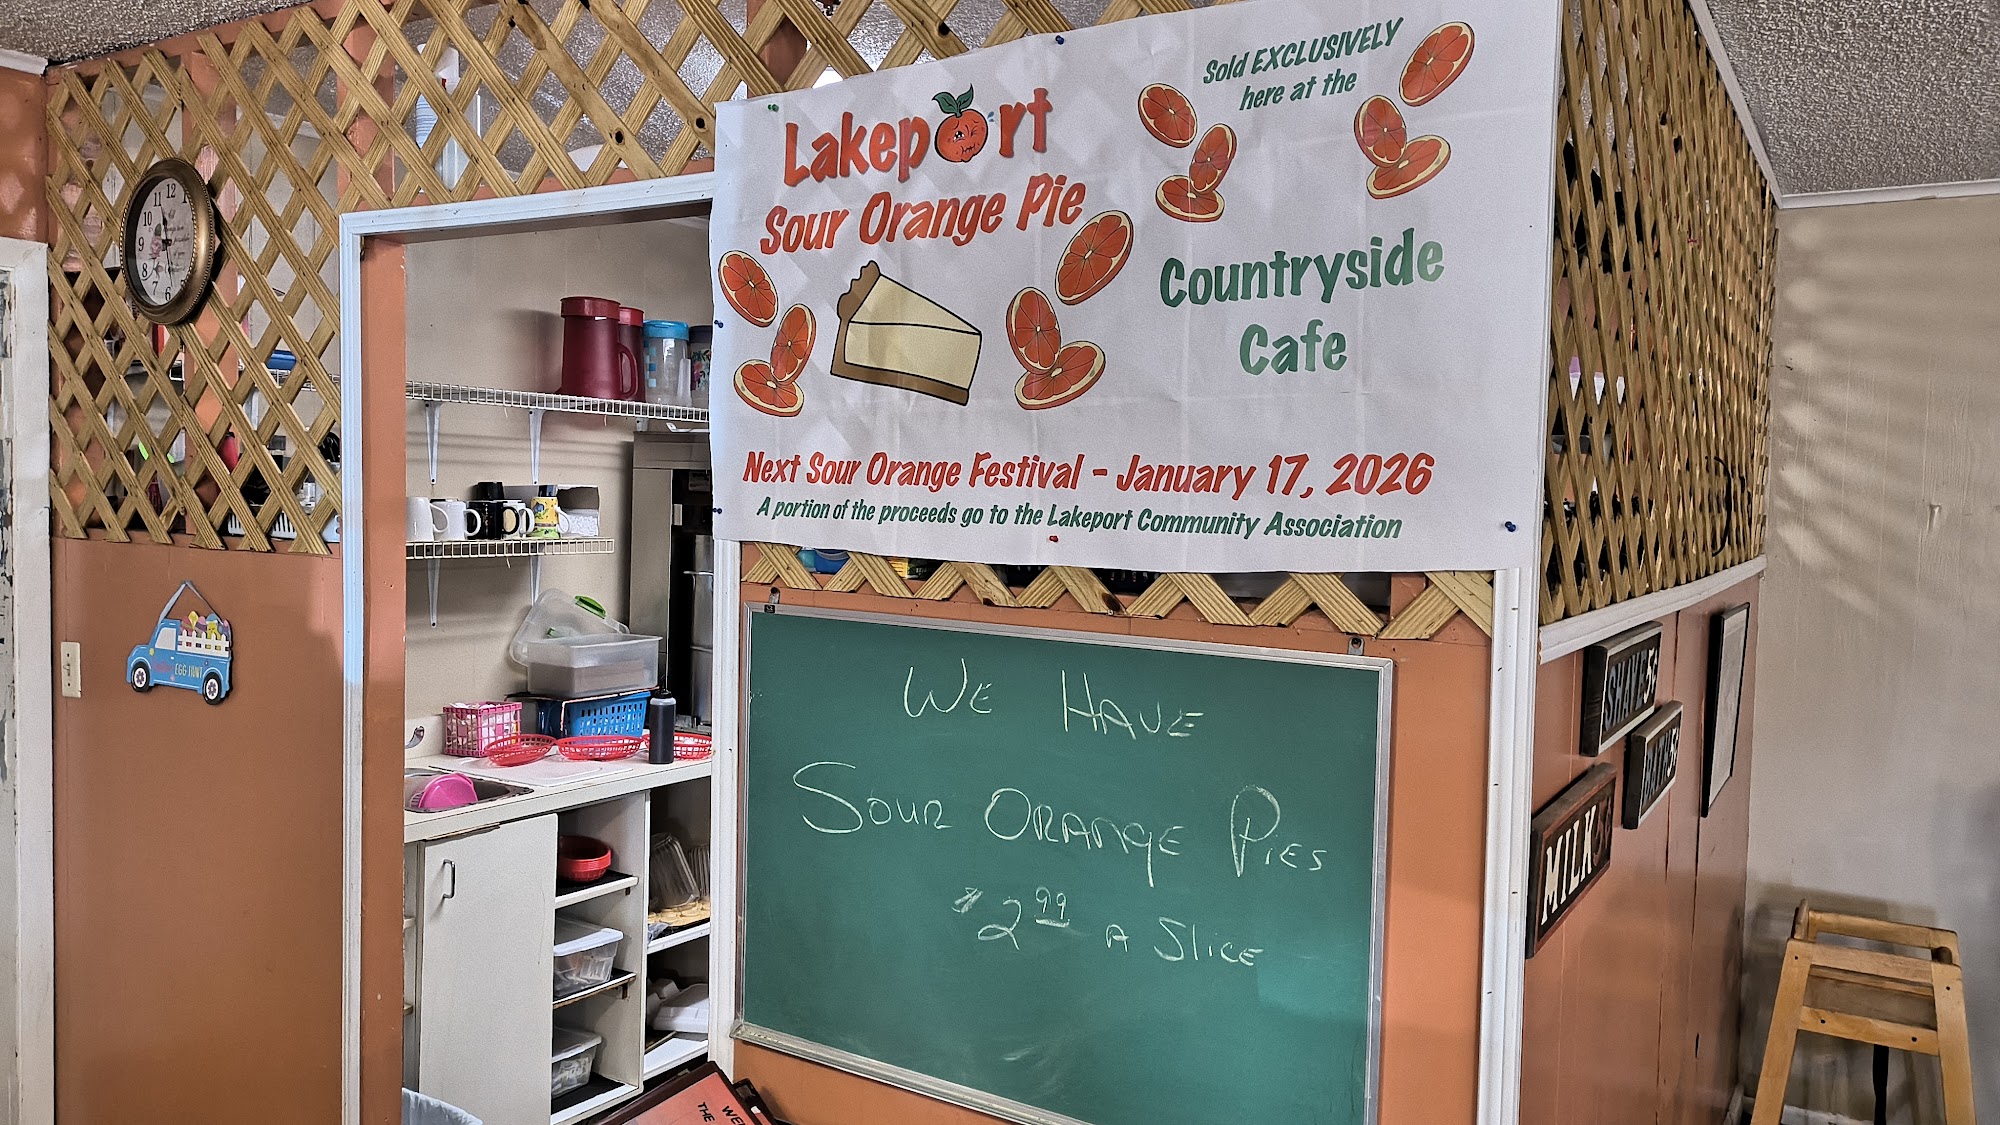 Lakeport
Sour Orange Pie
Sold EXCLUSIVELY
here at the
Countryside
Cafe
Next Sour Orange Festival - January 17, 2026
A portion of the proceeds go to the Lakeport Community Association
WE HAVE
SOUR ORANGE PIES
$2.99 A SLICE
EGG HUNT
SHAKE 5¢
MILK 5¢
12
11
10
9
8
7
6
1
THE